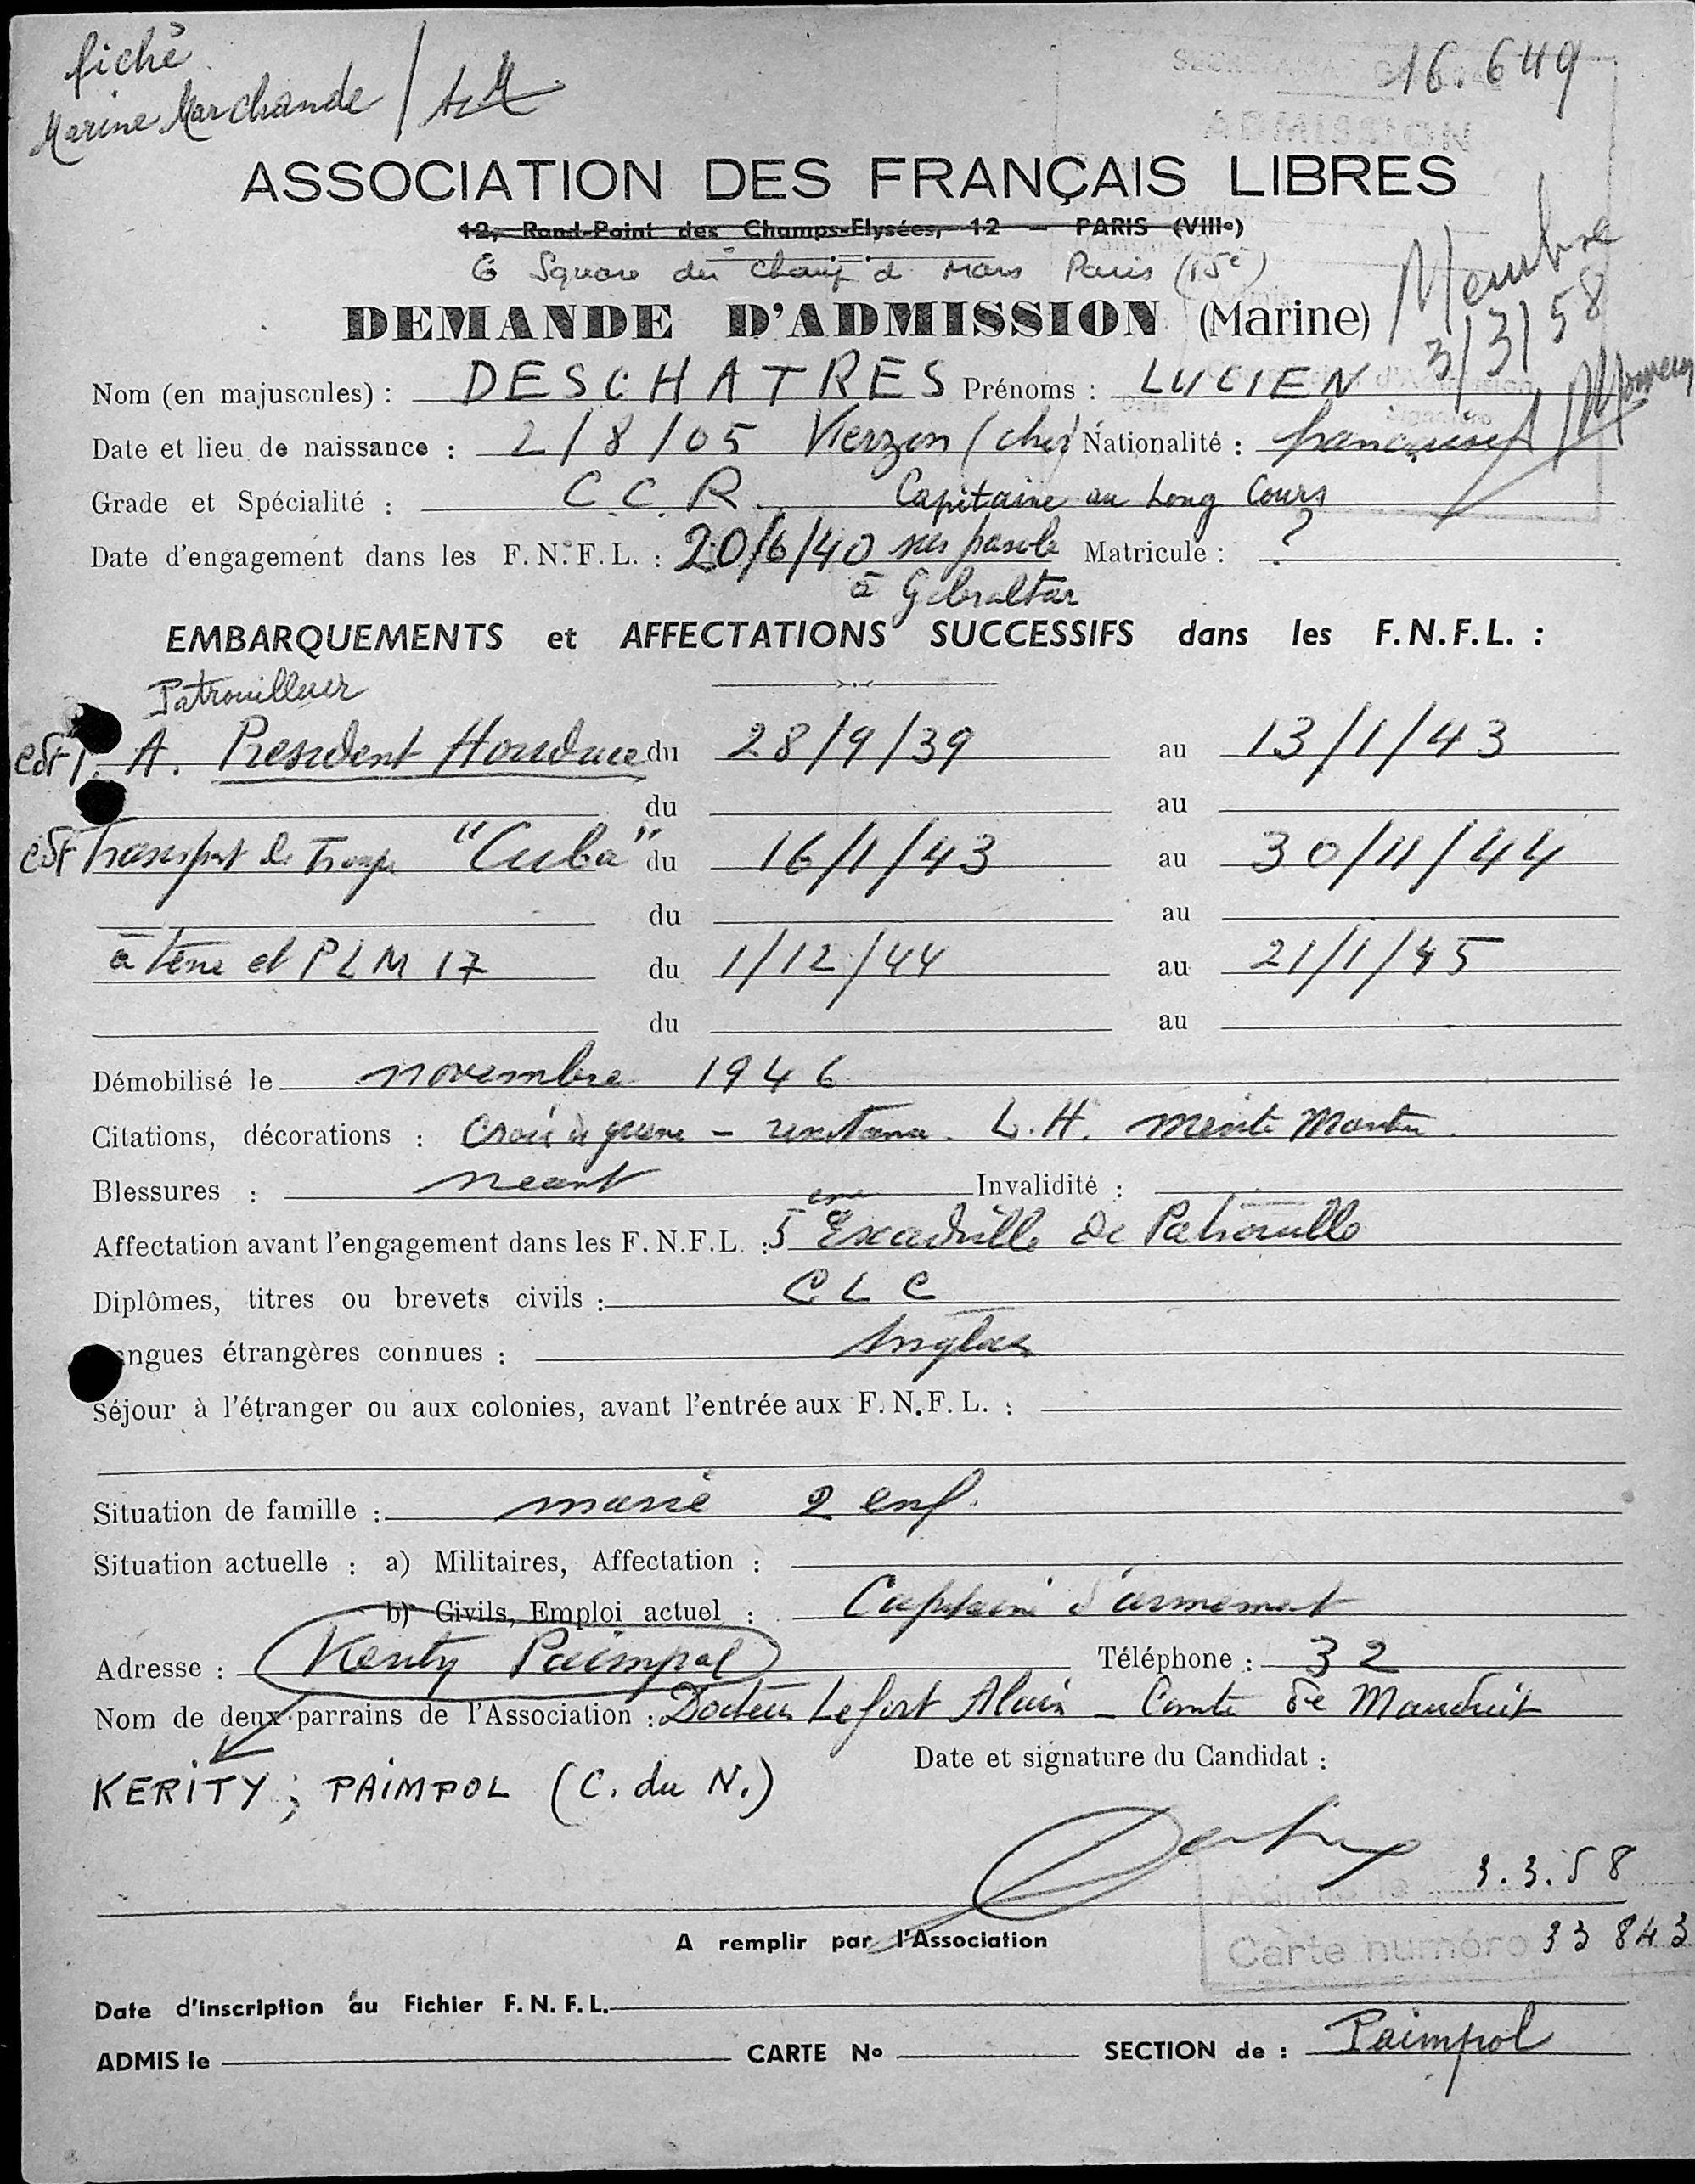 fiché
Marine Marchande /
16.649
ADMISSION
ASSOCIATION DES FRANÇAIS LIBRES
12, Rond-Point des Champs-Elysées, 12 — PARIS (VIIIe)
6 Square du Champ d Mars Paris (15e)
Membre
3/3/58
DEMANDE D'ADMISSION (Marine)
Nom (en majuscules) : DESCHATRES Prénoms : LUCIEN
Date et lieu de naissance : 2/8/05 Vierzon (cher) Nationalité : française
Grade et Spécialité : C.C.R. Capitaine au Long Cours
Date d'engagement dans les F.N.F.L. : 20/6/40 sur parole Matricule : ?
à Gibraltar
EMBARQUEMENTS et AFFECTATIONS SUCCESSIFS dans les F.N.F.L. :
Patrouilleur
A. President Houduce du 28/9/39 au 13/1/43
du au
Transport de Troupe "Cuba" du 16/1/43 au 30/11/44
du au
à terre et PLM 17 du 1/12/44 au 21/1/45
du au
Démobilisé le novembre 1946
Citations, décorations : Croix de guerre - resistance. L.H. merite Maritime.
Blessures : neant Invalidité :
Affectation avant l'engagement dans les F.N.F.L. : 5eme Escadrille de Patrouille
Diplômes, titres ou brevets civils : CLC
ngues étrangères connues : Anglais
Séjour à l'étranger ou aux colonies, avant l'entrée aux F.N.F.L. :
Situation de famille : marié 2 enf.
Situation actuelle : a) Militaires, Affectation :
b) Civils, Emploi actuel : Capitaine d'armement
Adresse : Kerity Paimpol Téléphone : 32
Nom de deux parrains de l'Association : Docteur Lefort Alain - Comte de Mauduit
Date et signature du Candidat :
KERITY ; PAIMPOL (C. du N.)
Admis le 3.3.58
A remplir par l'Association
Carte numéro 33 843
Date d'inscription au Fichier F.N.F.L.
ADMIS le CARTE No SECTION de : Paimpol